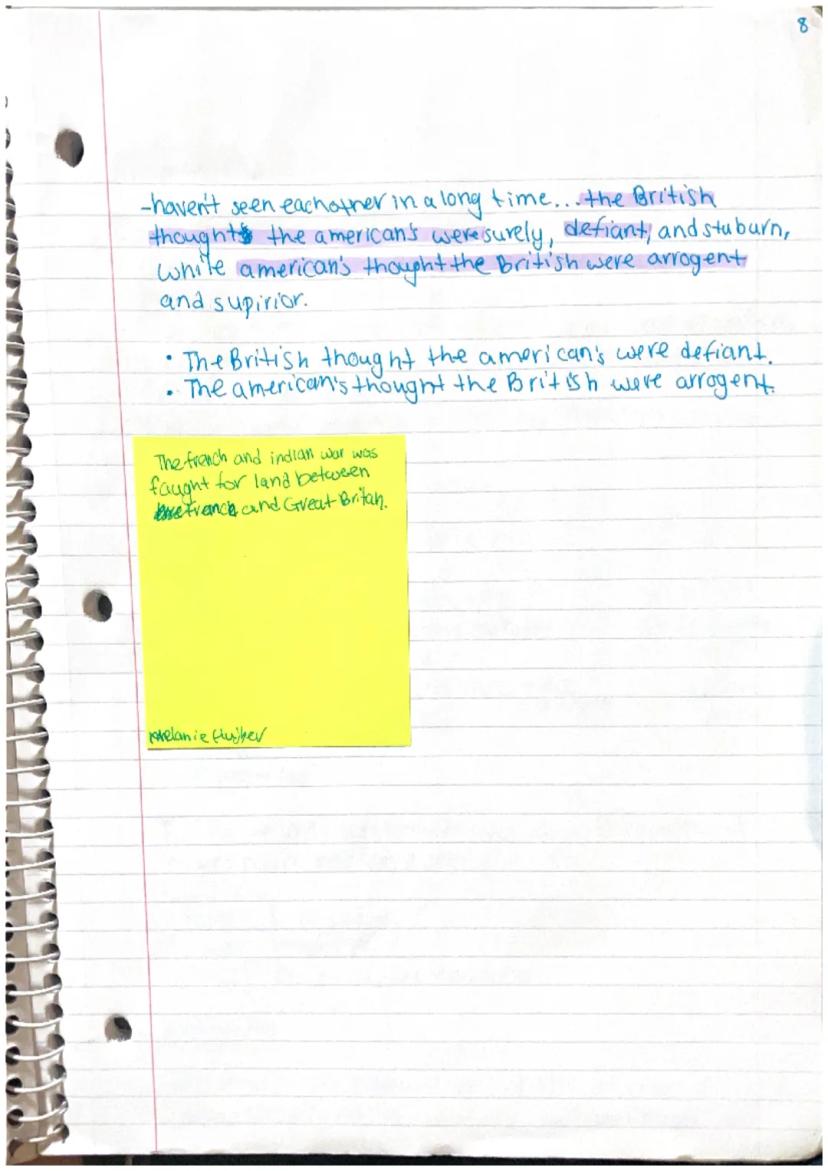 8
-haven't seen eachother in a long time... the British
thought the american's were surely, defiant, and stuburn,
while american's thought the British were arrogent
and supirior.
• The British thought the american's were defiant.
• The american's thought the British were arrogent.
The french and indian war was
faught for land between
France and Great Britan.
Melanie